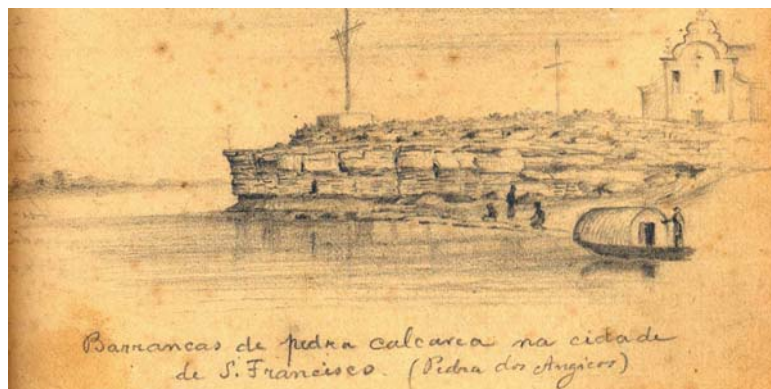 Barrancas de pedra calcarea na cidade
de S. Francisco. (Pedra dos Angicos)